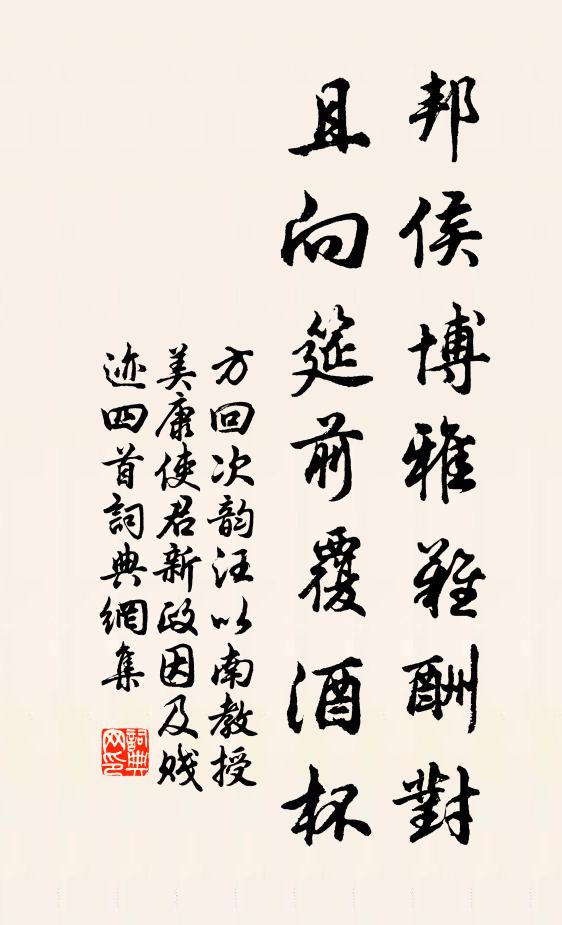 邦侯博雅難酬對
且向筵前覆酒杯
方回次韵汪以南教授
美康使君新政因及贱
迹四首詞典網集
詞典网印